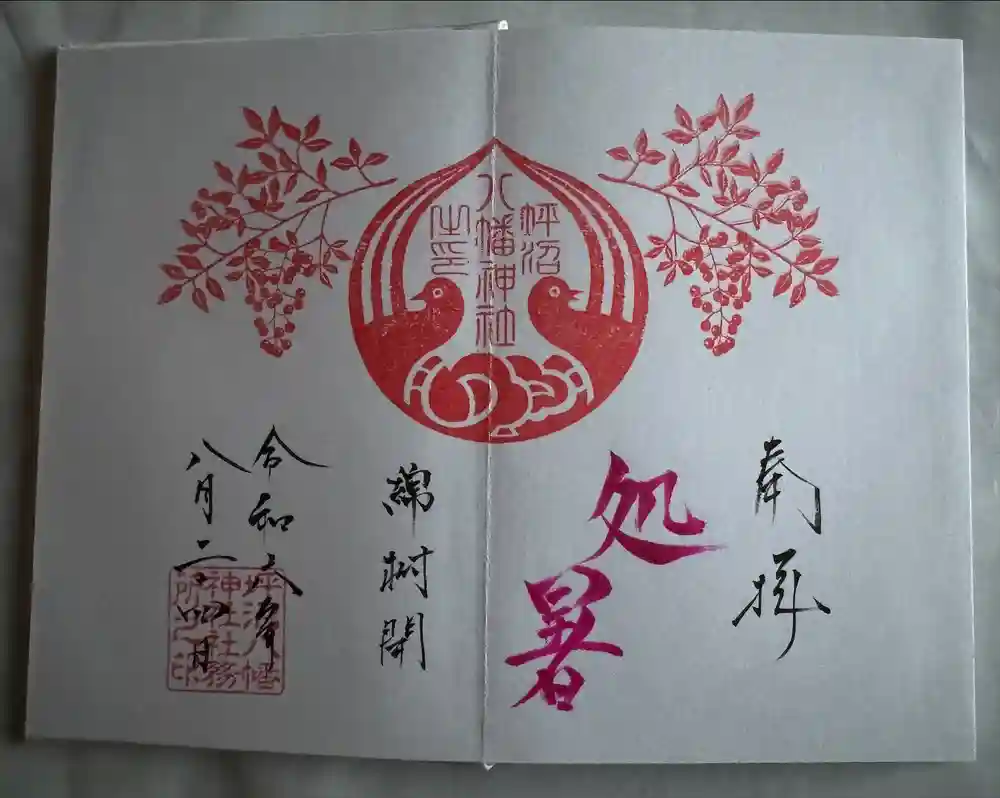 奉拝
坪沼
八幡神社
之印
処暑
綿柎開
令和六年
八月二十四日
坪沼八幡
神社社務
所之印